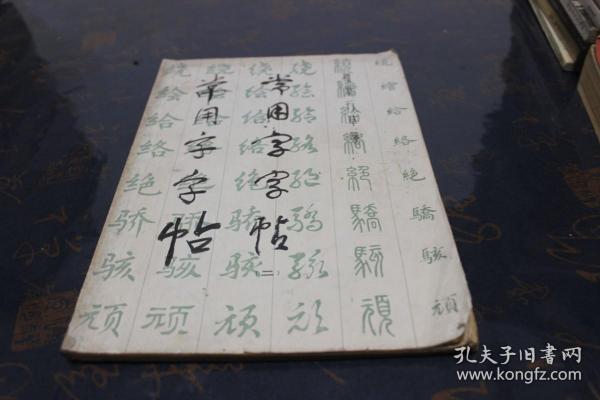 常用字字帖
常用字字帖
二
绕绘给络绝骄骇顽
绕绘给络绝骄骇顽
绕绘给络绝骄骇顽
绕绘给络绝骄骇顽
繞繪給絡絕驕駭頑
繞繪給絡絕驕駭頑
孔夫子旧书网
www.kongfz.com